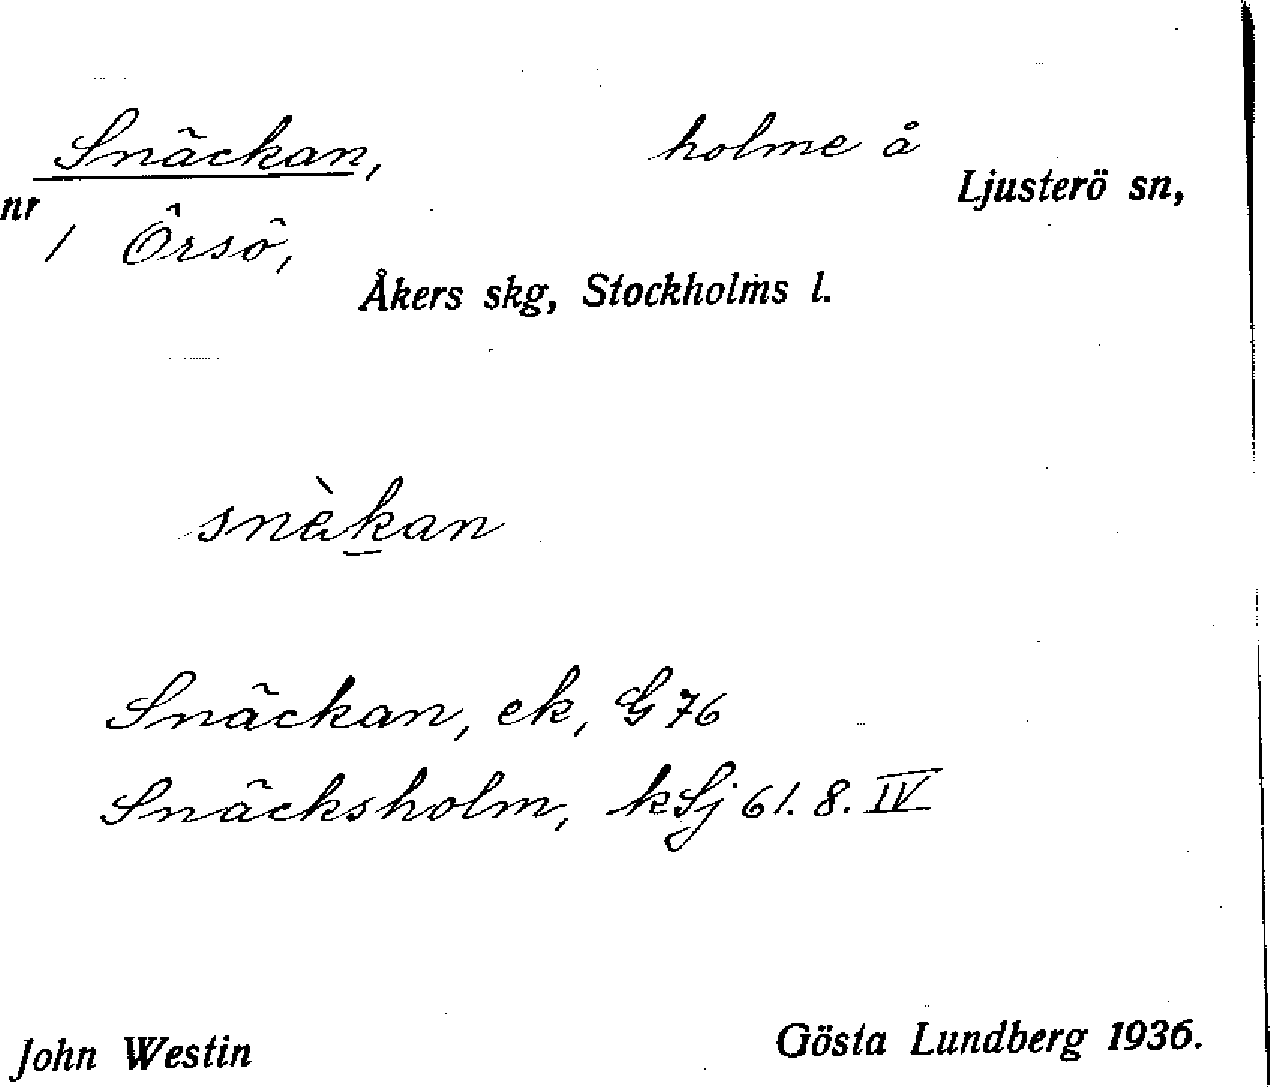 Snäckan, holme å
Ljusterö sn,
nr 1 Örsö,
Åkers skg, Stockholms l.
snèkan
Snäckan, ek, G 76
Snäcksholm, kSj 61. 8. IV
John Westin Gösta Lundberg 1936.